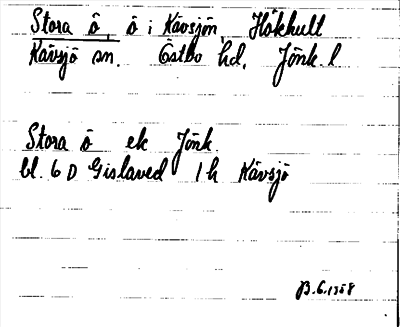 Stora ö, ö i Kävsjön, Hökhult
Kävsjö sn. Östbo hd, Jönk. l
Stora ö ek Jönk.
bl. 6 D Gislaved 1 h Kävsjö
B.G. 1958